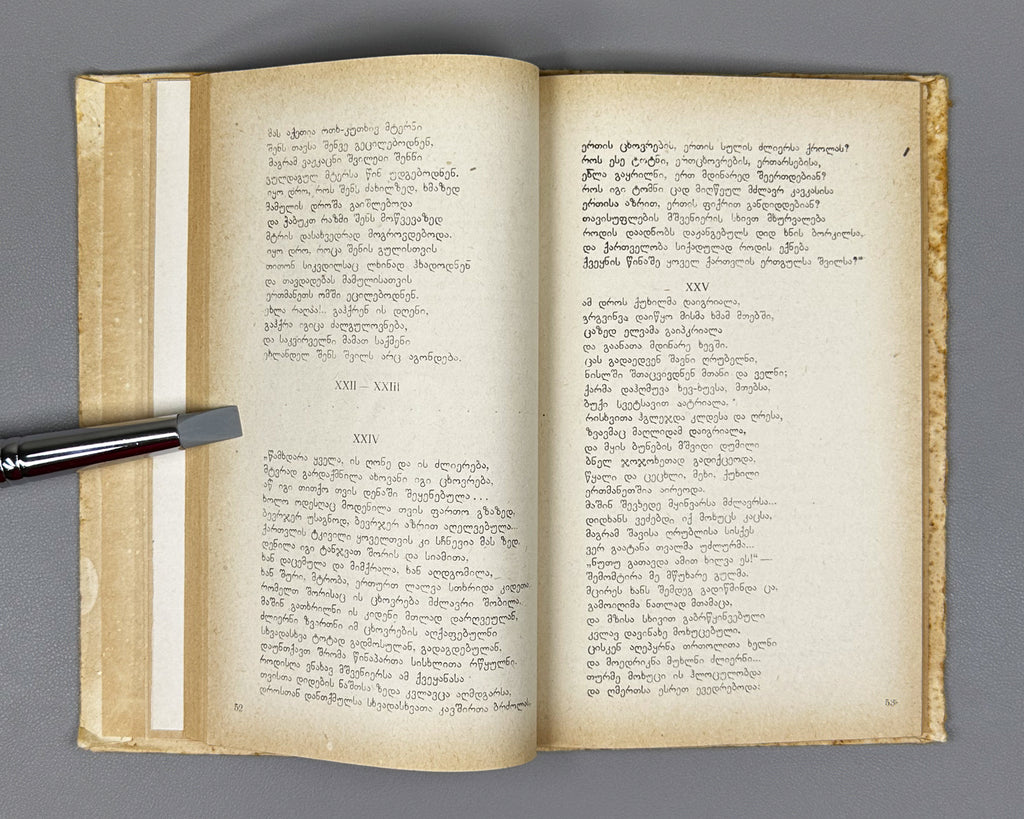 მას აქეთია ოთხ-კუთხივ მტერნი
შენს თავსა შენვე გეცილებოდნენ,
მაგრამ ვაჟკაცნი შვილები შენნი
გულდაგულ მტერსა წინ უდგებოდნენ.
იყო დრო, როს შენს ძახილზედ, ხმაზედ
მამულის დროშა გაიშლებოდა
და ჭაბუკთ რაზმი შენს მოწვევაზედ
მტრის დასახვედრად მოგროვდებოდა.
იყო დრო, როცა შენის გულისთვის
თითონ სიკვდილსაც ლხინად ჰხადოდნენ
და თავდადებას მამულისათვის
ერთმანეთს ომში ეცილებოდნენ.
ეხლა რაღაა!.. გაჰქრენ ის დღენი,
გაჰქრა იგიცა ძალგულოვნება,
და საკვირველნი მამათ საქმენი
ეხლანდელ შენს შვილს არც აგონდება.
XXII — XXIII
XXIV
„წამხდარა ყველა, ის ღონე და ის ძლიერება,
მტერად გარდაქმნილა ახოვანი იგი ცხოვრება,
აწ იგი თითქო თვის დენაში შეყენებულა...
ხოლო ოდესღაც მოდენილა თვის ფართო გზაზედ,
ბევრჯერ უსაგნოდ, ბევრჯერ აზრით აღელვებულა...
ქართვლის ტკივილი ყოველთვის კი სჩნევია მას ზედ.
დენილა იგი ტანჯვათ შორის და სიამითა,
ხან დაცემულა და მიმქრალა, ხან აღდგომილა,
ხან შური, მტრობა, ერთურთ ლალვა სთხრიდა კიდეთა.
რომელთ შორისაც ის ცხოვრება მძლავრი შობილა.
მაშინ გათხრილნი ის კიდენი მთლად დარღვეულან,
ძლიერნი ზვართნი იმ ცხოვრების აღქაფებულნი
სხვადასხვა ტოტად გადმოსულან, გადაგდებულან,
დაუნთქავთ შრომა წინაპართა სისხლითა რწყულნი.
როდისღა ვნახავ მშვენიერსა ამ ქვეყანასა
თვისთა დიდების ნაშთსა ზედა კვლავცა აღმდგარსა,
დროსთან დანთქმულსა სხვადასხვათა კავშირთა ბრძოლას
52
ერთის ცხოვრების, ერთის სულის ძლიერსა ქროლას?
როს ესე ტოტნი, ერთცხოვრების, ერთარსებისა,
ეხლა გაყრილნი, ერთ მდინარედ შეერთდებიან?
როს იგი ტომნი ცად მიღწეულ მძლავრ კავკასისა
ერთისა აზრით, ერთის ფიქრით განდიდდებიან?
თავისუფლების მშვენიერის სხივთ მხურვალება
როდის დაადნობს დაჟანგებულს დიდ ხნის ბორკილსა,
და ქართველობა სიქადულად როდის ექნება
ქვეყნის წინაშე ყოველ ქართვლის ერთგულსა შვილსა?“
XXV
ამ დროს ქუხილმა დაიგრიალა,
გრგვინვა დაიწყო მისმა ხმამ მთებში,
ცაზედ ელვამა გაიპკრიალა
და გაანათა მდინარე ხევში.
ცას გადაედვენ შავნი ღრუბელნი,
ნისლში შთაცვივდნენ მთანი და ველნი;
ქარმა დაჰღმუვა ხევ-ხუვსა, მთებსა,
ბუქი სვეტსავით აატრიალა.
რისხვითა ჰგლეჯდა კლდესა და ღრესა,
ზვავმაც მაღლიდამ დაიგრიალა,
და მყის ბუნების მშვიდი დუმილი
ბნელ ჯოჯოხეთად გადიქცეოდა,
წყალი და ცეცხლი, მეხი, ქუხილი
ერთმანეთშია აირეოდა.
მაშინ შევხედე მყინვარსა მძლავრსა...
დიდხანს ვეძებდი იქ მოხუცს კაცსა,
მაგრამ შავისა ღრუბლისა სისქეს
ვერ გაატანა თვალმა უძლურმა...
„ნუთუ გათავდა ამით ხილვა ეს!“ —
შემომტირა მე მწუხარე გულმა.
მცირეს ხანს შემდეგ გადიწმინდა ცა,
გამოიღიმა ნათლად მთამაცა,
და მზისა სხივით გაბრწყინვებული
კვლავ დავინახე მოხუცებული.
ცისკენ აღეპყრნა თრთოლითა ხელნი
და მოედრიკნა მუხლნი ძლიერნი...
თურმე მოხუცი ის ჰლოცულობდა
და ღმერთსა ესრეთ ევედრებოდა:
53